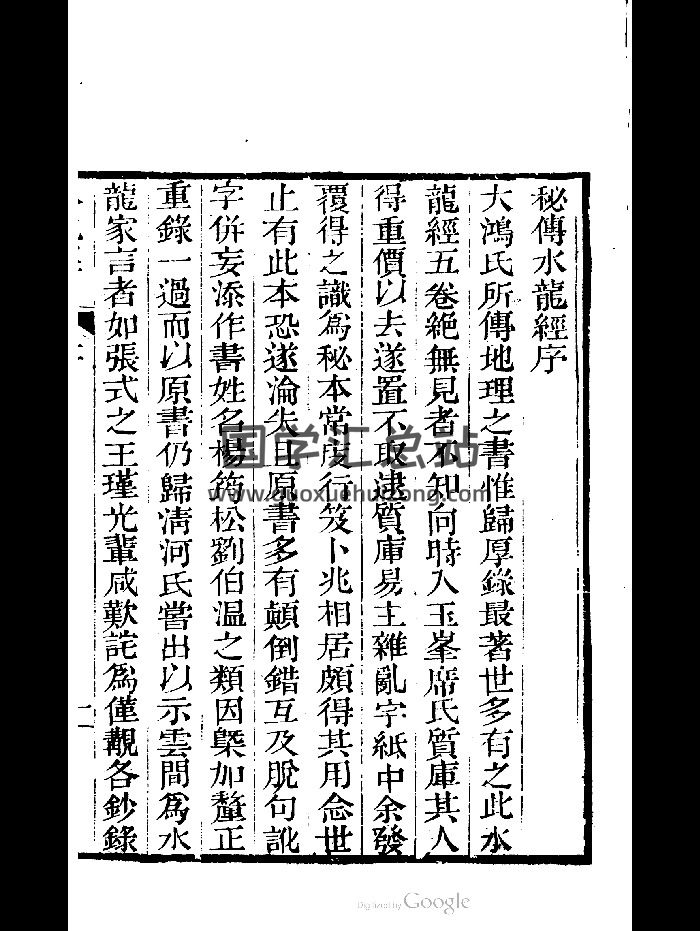 秘傳水龍經序
大鴻氏所傳地理之書惟歸厚錄最著世多有之此水
龍經五卷絕無見者不知何時入玉峯席氏質庫其人
得重價以去遂置不取逮質庫易主雜亂字紙中余發
覆得之識爲秘本常度行笈卜兆相居頗得其用念世
止有此本恐遂淪失且原書多有顛倒錯互及脫句訛
字併妄添作書姓名楊筠松劉伯溫之類因槩加釐正
重錄一過而以原書仍歸淸河氏嘗出以示雲間爲水
龍家言者如張式之王瑾光輩咸歎詫爲僅覯各鈔錄
国学汇总站
www.guoxuehuizong.com
Digitized by Google